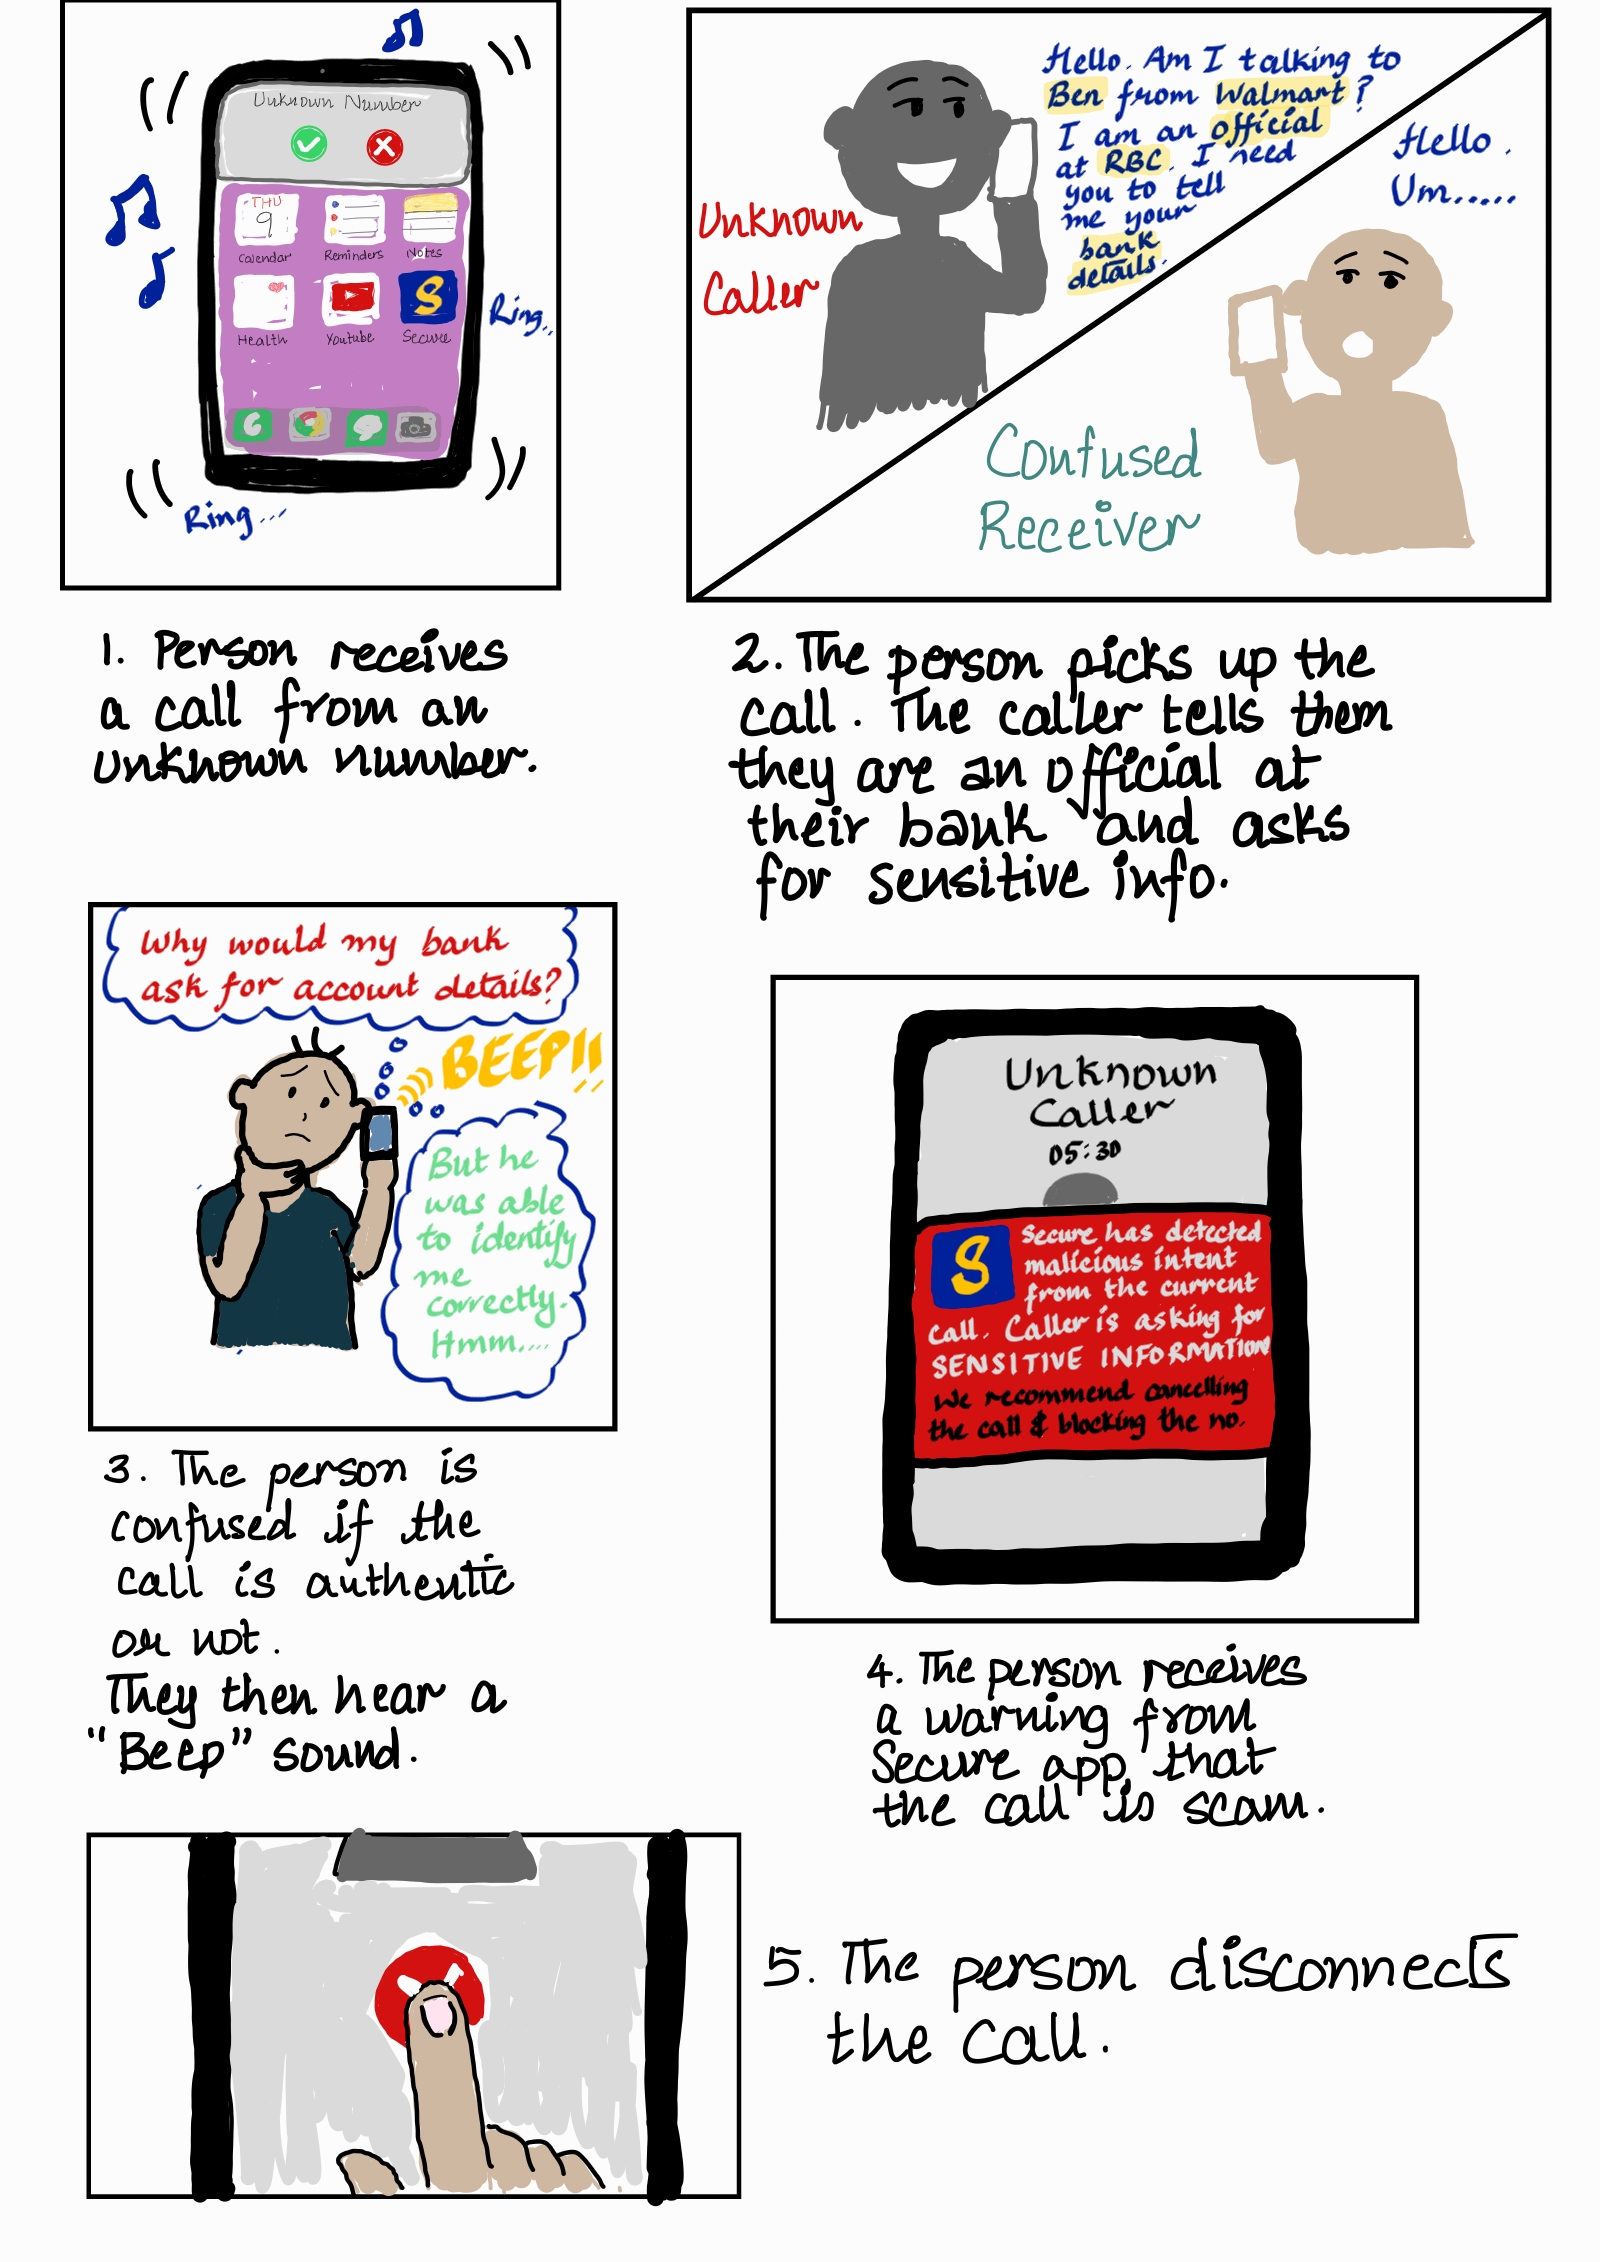 Unknown Number
THU
9
Calendar
Reminders
Notes
Health
Youtube
S
Secure
Ring..
Ring...
Unknown
Caller
Hello. Am I talking to
Ben from Walmart?
I am an official
at RBC. I need
you to tell
me your
bank
details.
Hello.
Um.....
Confused
Receiver
1. Person receives
a call from an
unknown number.
2. The person picks up the
call. The caller tells them
they are an official at
their bank and asks
for sensitive info.
Why would my bank
ask for account details?
BEEP!!
But he
was able
to identify
me
correctly.
Hmm....
3. The person is
confused if the
call is authentic
or not.
They then hear a
"Beep" sound.
Unknown
Caller
05:30
S
Secure has detected
malicious intent
from the current
call. Caller is asking for
SENSITIVE INFORMATION
We recommend cancelling
the call & blocking the no.
4. The person receives
a warning from
Secure app that
the call is scam.
5. The person disconnects
the call.